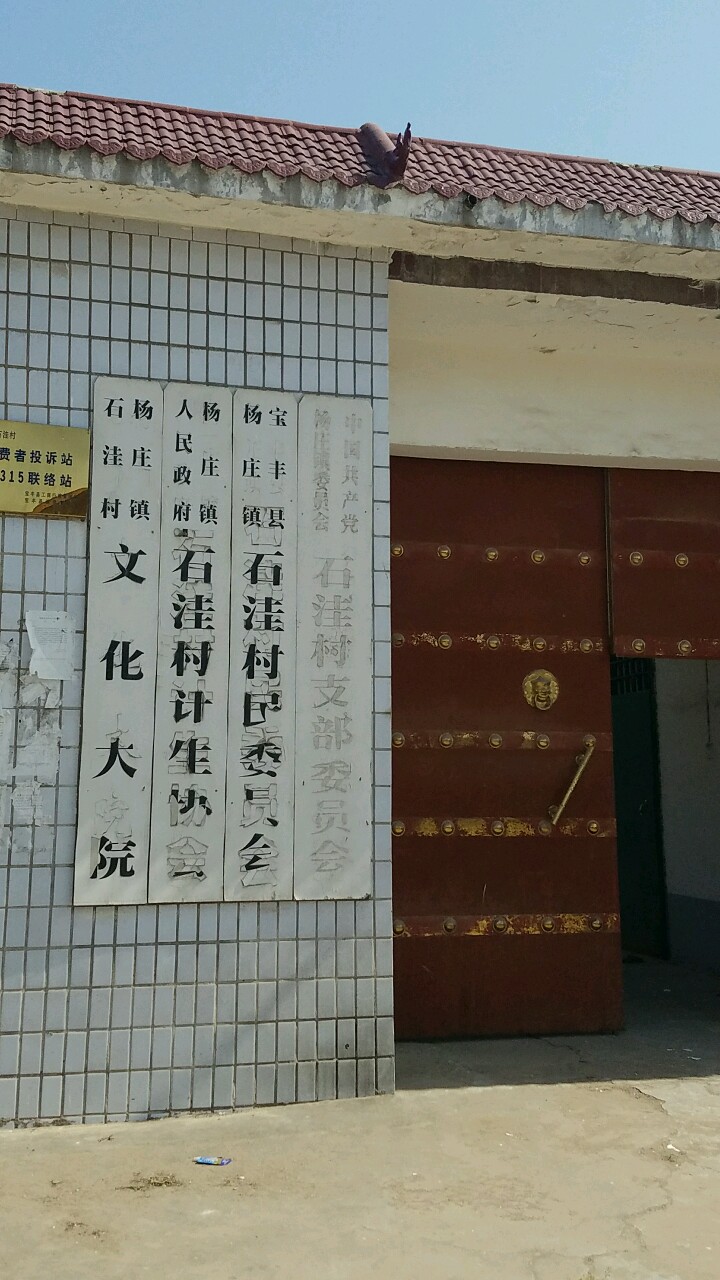 费者投诉站
315联络站
杨庄镇
石洼村
文化大院
杨庄镇
人民政府
石洼村计生协会
宝丰县
杨庄镇
石洼村民委员会
中国共产党
石洼村支部委员会